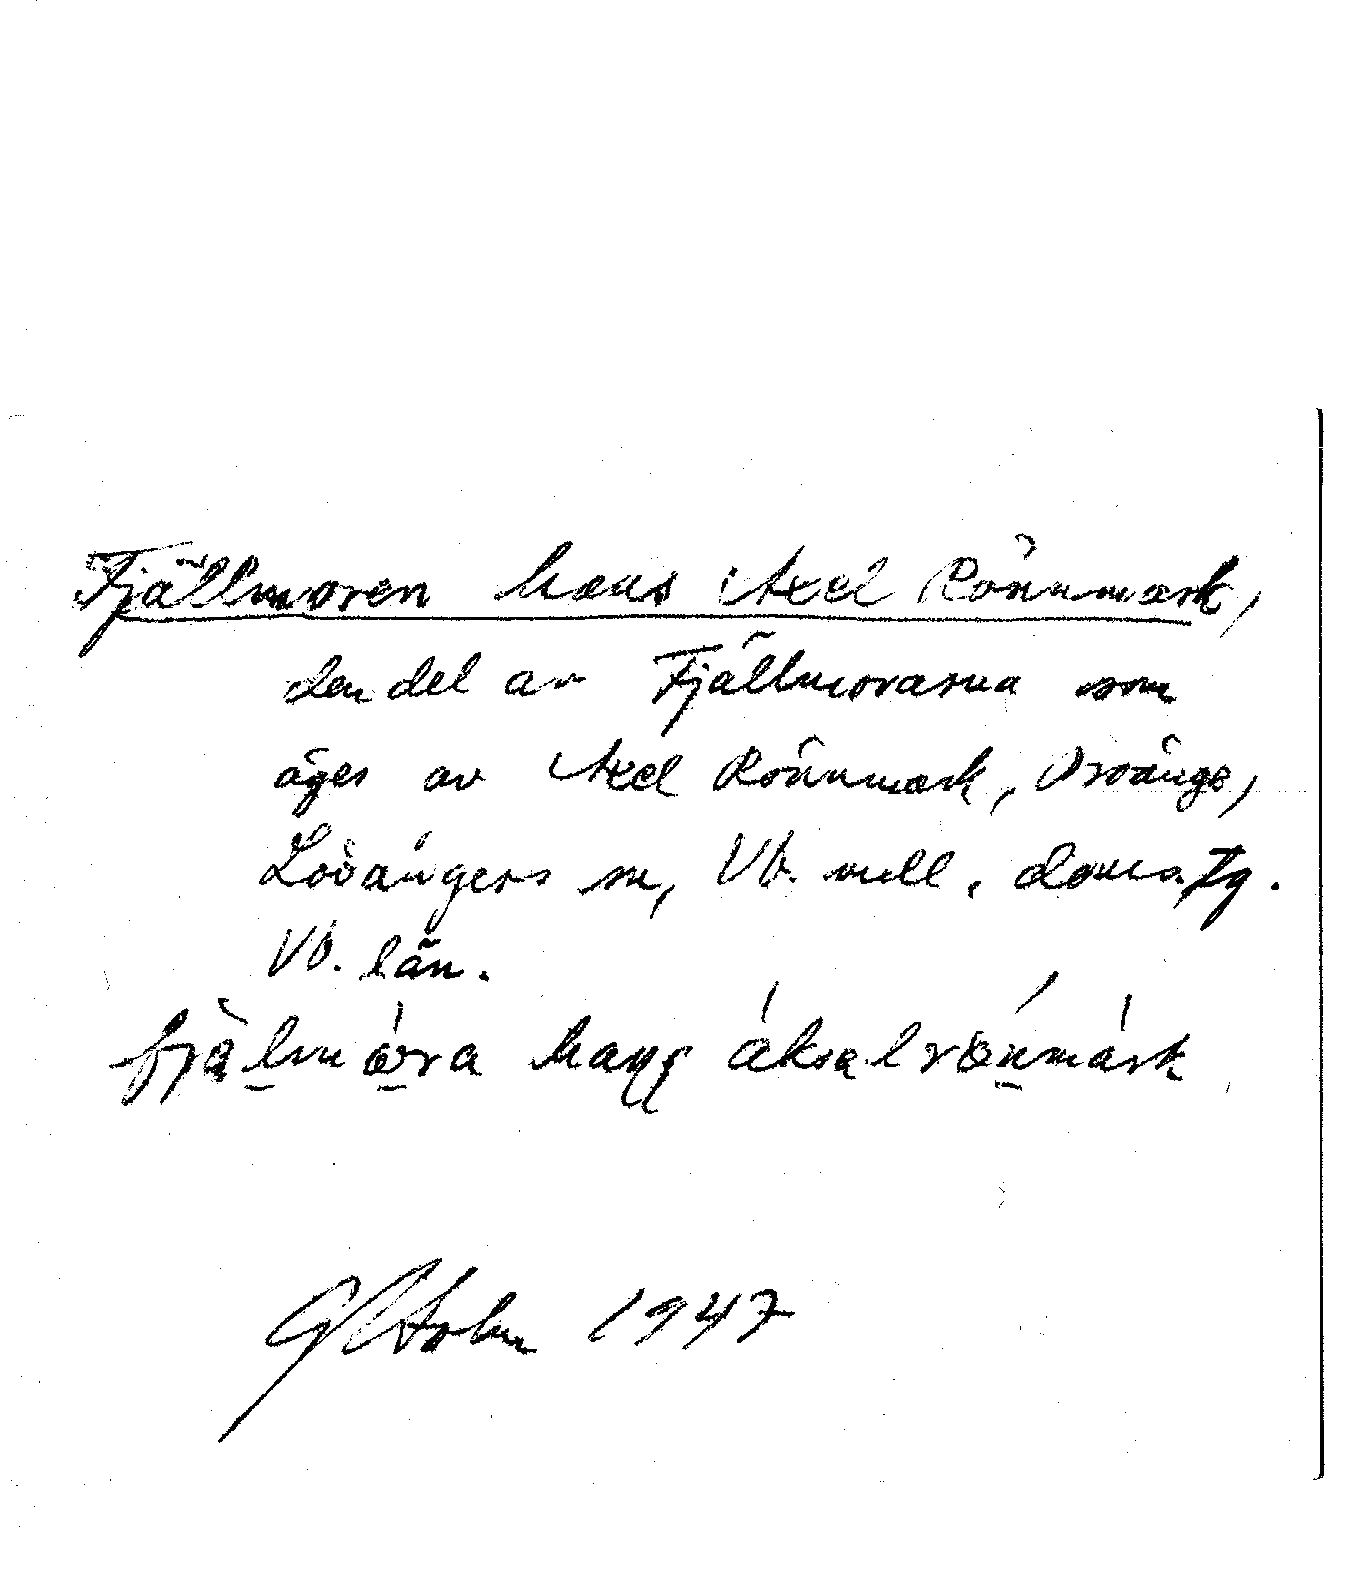 Fjällmoren hans Axel Rönnmark,
den del av Fjällmorarna som
äges av Axel Rönnmark, Broänge,
Lövångers sn, Vb. mell. doms. Tg.
Vb. län.
fjälmöra hans áksel rönmárk
1947